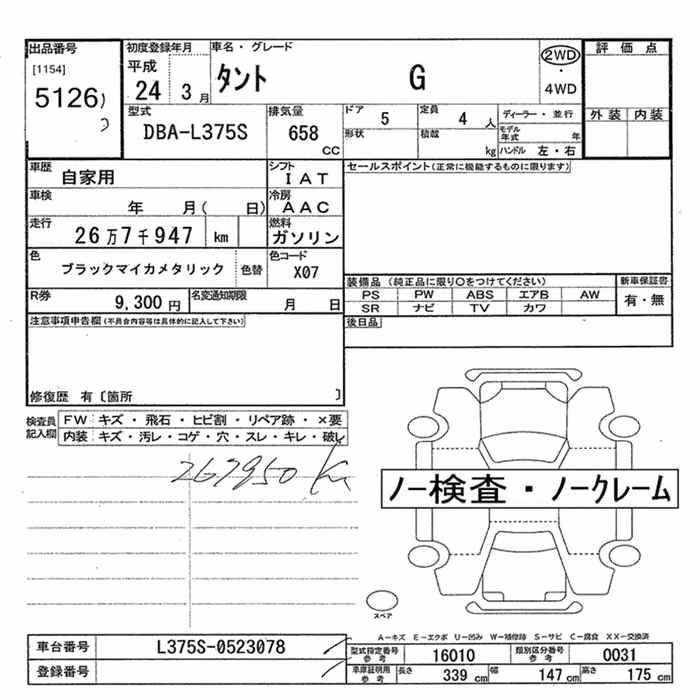 出品番号 初度登録年月 車名・グレード 2WD 評価点
[1154] 平成 ・
5126 24 3月 タント G 4WD
型式 排気量 ドア 5 定員 4人 ディーラー・並行 外装 内装
DBA-L375S 658 CC 形状 積載 kg モデル年式 年
ハンドル 左・右
車歴 自家用 シフト IAT セールスポイント(正常に機能するものに限ります)
車検 年 月( 日) 冷房 AAC
走行 26万7千947 km 燃料 ガソリン
色 ブラックマイカメタリック 色替 色コード X07
装備品 (純正品に限り○をつけてください) 新車保証書
PS PW ABS エアB AW 有・無
SR ナビ TV カワ
R券 9,300円 名変通知期限 月 日
後日品
注意事項申告欄(不具合内容等は具体的に記入して下さい)
修復歴 有〔箇所 〕
検査員記入欄 FW キズ・飛石・ヒビ割・リペア跡・×要
内装 キズ・汚レ・コゲ・穴・スレ・キレ・破レ
267950 Km
ノー検査・ノークレーム
スペア
A-キズ E-エクボ U-凹み W-補修跡 S-サビ C-腐食 XX-交換済
車台番号 L375S-0523078
型式指定番号参考 16010 類別区分番号参考 0031
登録番号
車庫証明用参考 長さ 339cm 幅 147cm 高さ 175cm